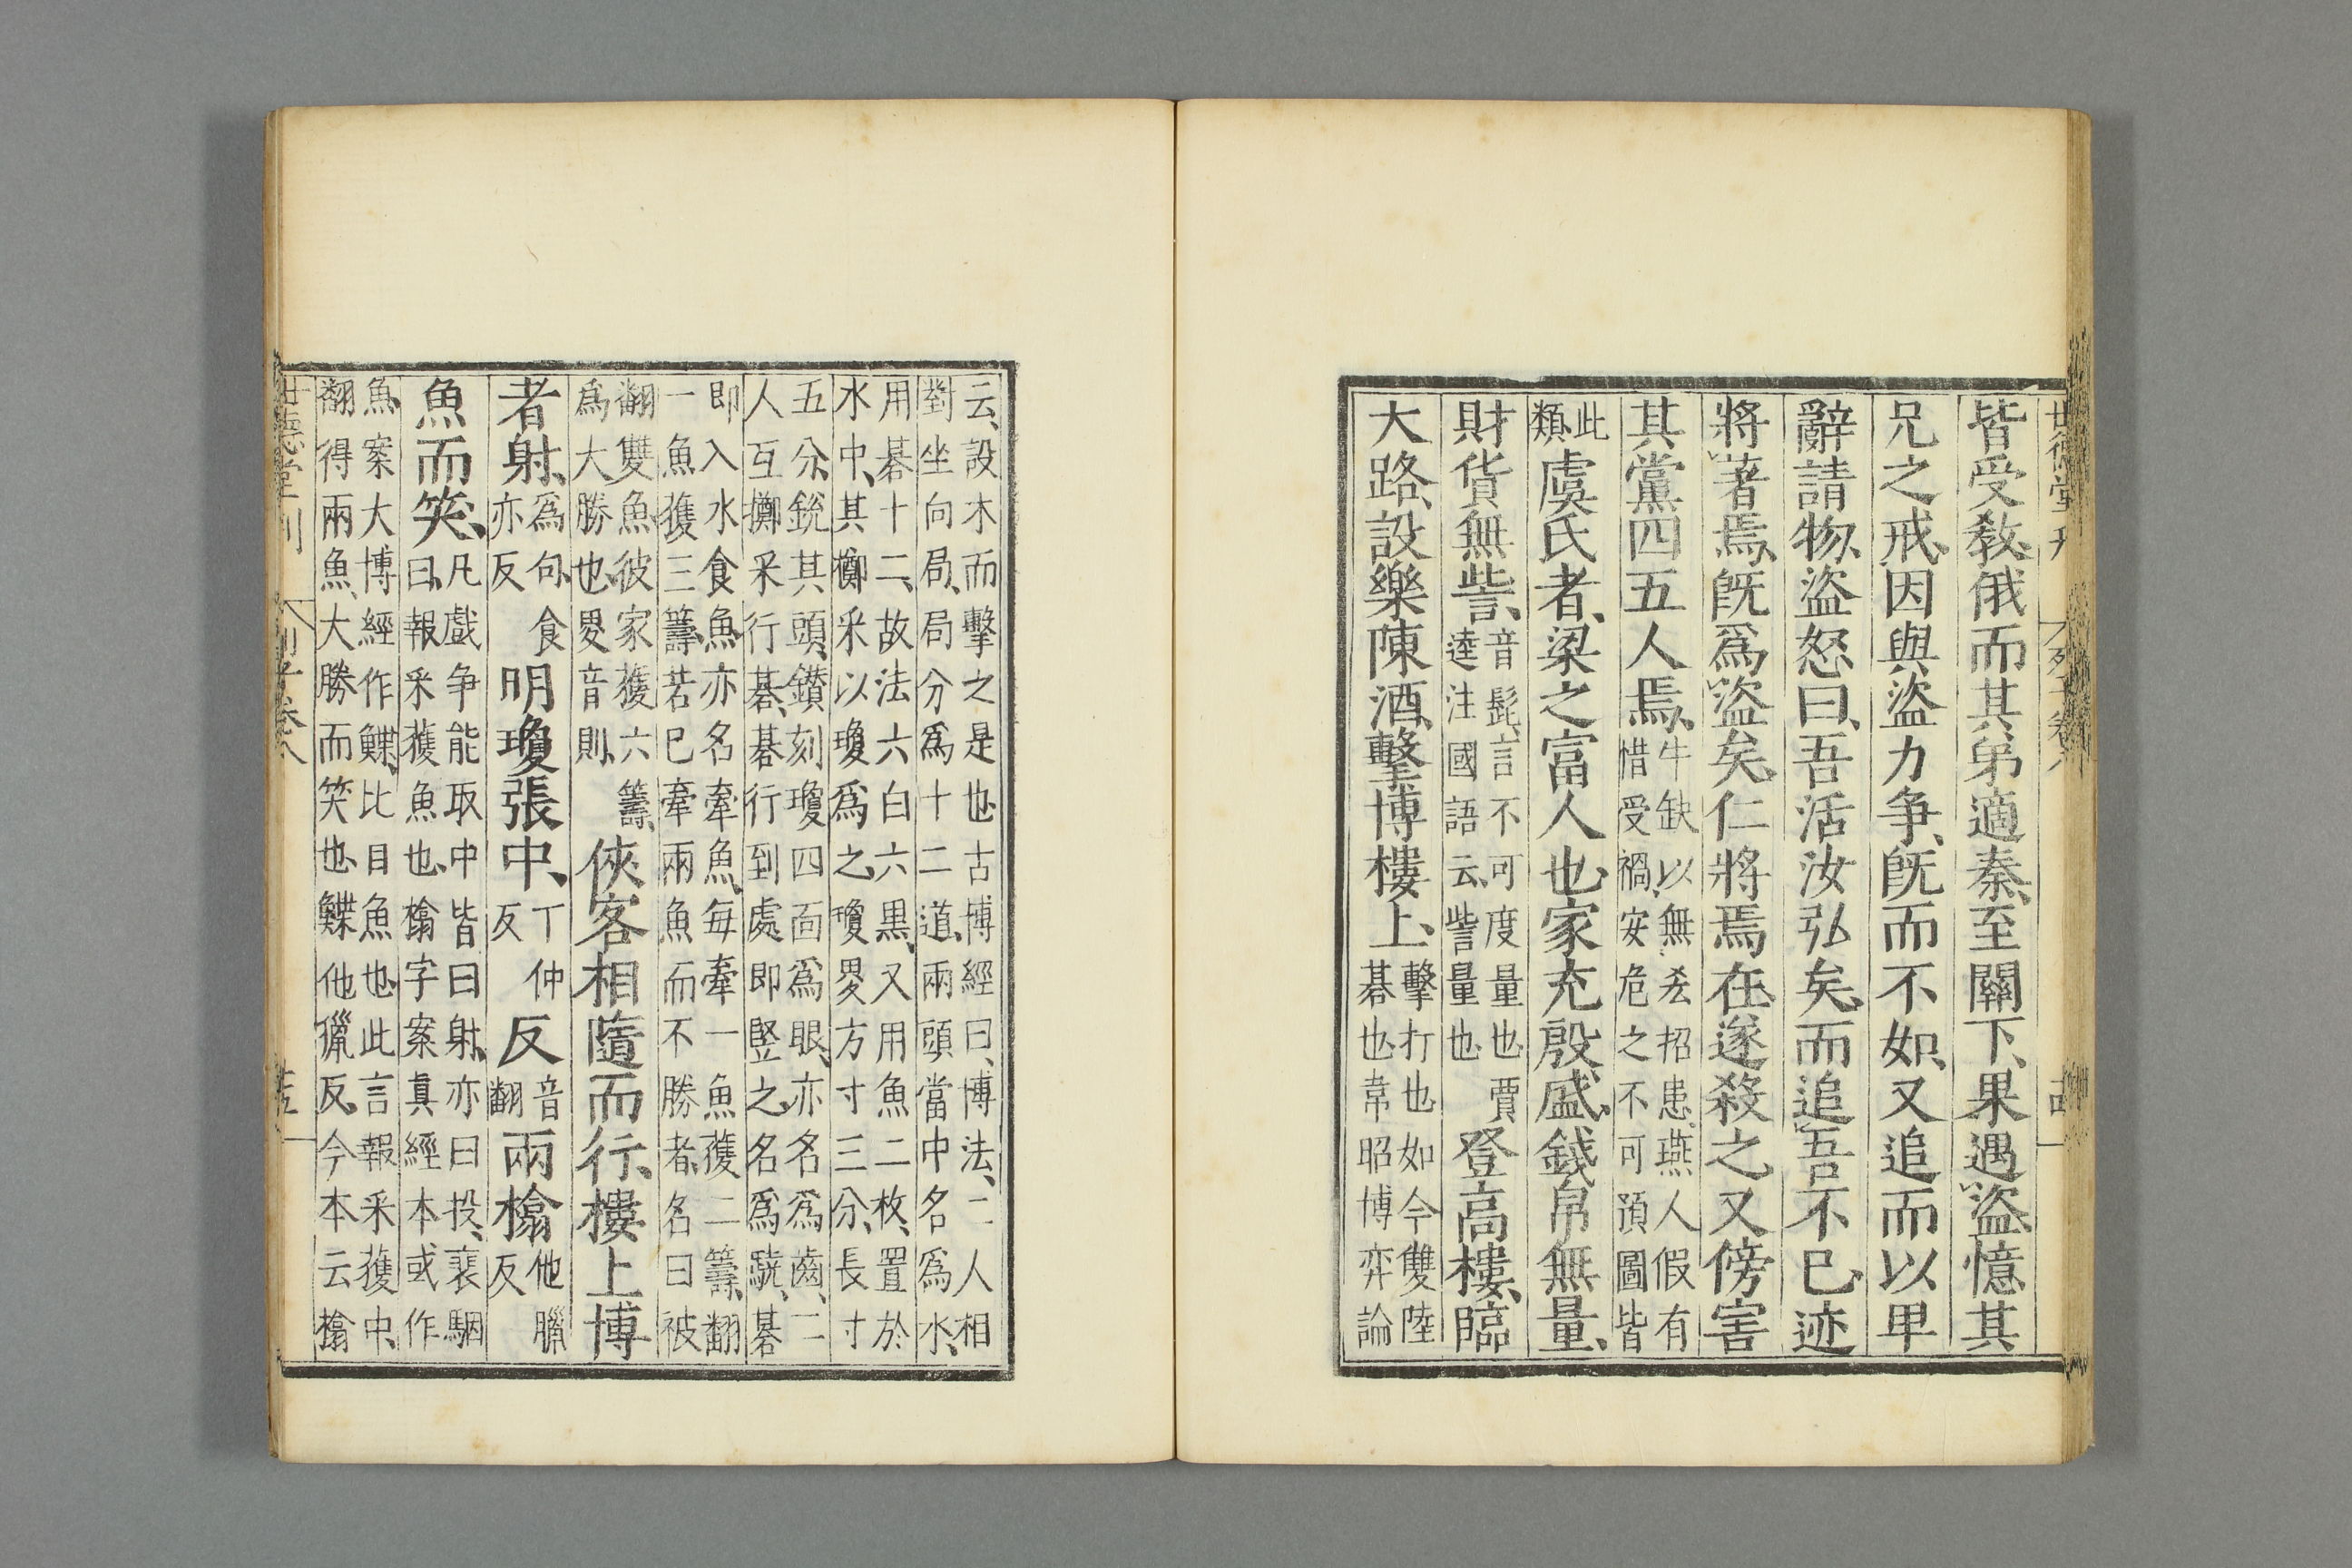 世德堂刊
列子卷八
十四
皆受教、俄而其弟適秦、至關下、果遇盜、憶其
兄之戒、因與盜力争、旣而不如、又追而以卑
辭請物、盜怒曰、吾活汝弘矣、而追吾不已、迹
將著焉、旣爲盜矣、仁將焉在、遂殺之、又傍害
其黨四五人焉、
牛缺以無𠫤招患、燕人假有
惜受禍、安危之不可預圖皆
此
類、
虞氏者、梁之富人也、家充殷盛、錢帛無量、
財貨無訾、
音髭、言不可度量也、賈
逵注國語云、訾量也
登高樓、臨
大路、設樂陳酒、擊博樓上、
擊打也如今雙陸
碁也、韋昭博弈論
云、設木而擊之是也、古博經曰、博法、二人相
對坐向局、局分爲十二道、兩頭當中名爲水、
用碁十二、故法六白六黑、又用魚二枚、置於
水中、其擲采以瓊爲之、瓊畟方寸三分、長寸
五分、銳其頭、鑽刻瓊四面爲眼、亦名爲齒、二
人互擲采行碁、碁行到處即竪之、名爲驍、碁
即入水食魚、亦名牽魚、毎牽一魚獲二籌、翻
一魚獲三籌、若已牽兩魚而不勝者、名曰被
翻雙魚、彼家獲六籌、
爲大勝也、畟音則、
俠客相隨而行、樓上博
者射、
爲句、食
亦反
明瓊張中、
丁仲
反
反
音
翻
兩㯓
他臘
反
魚而笑、
凡戲争能取中皆曰射、亦曰投、裴駰
曰、報采獲魚也、㯓字案真經本或作
魚、案大博經作鰈、比目魚也、此言報采獲中、
翻得兩魚、大勝而笑也、鰈他獵反、今本云㯓
世德堂刊
列子卷八